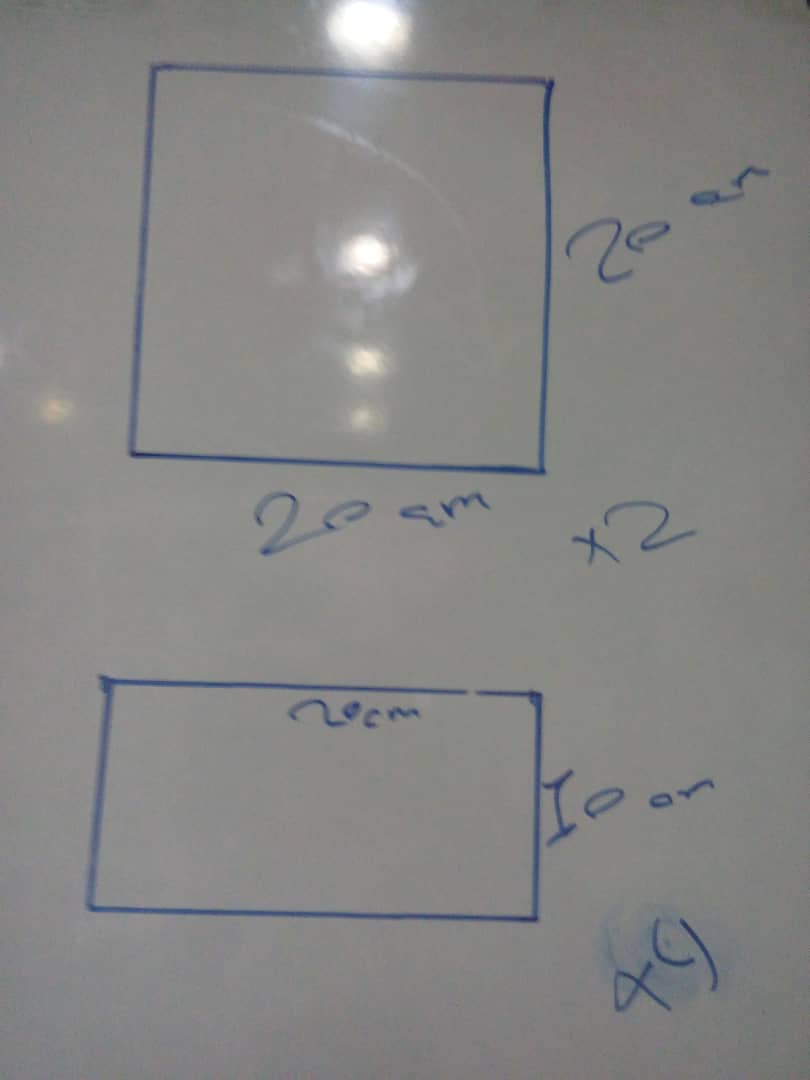 20 cm
20 cm
x2
20cm
10 cm
x4